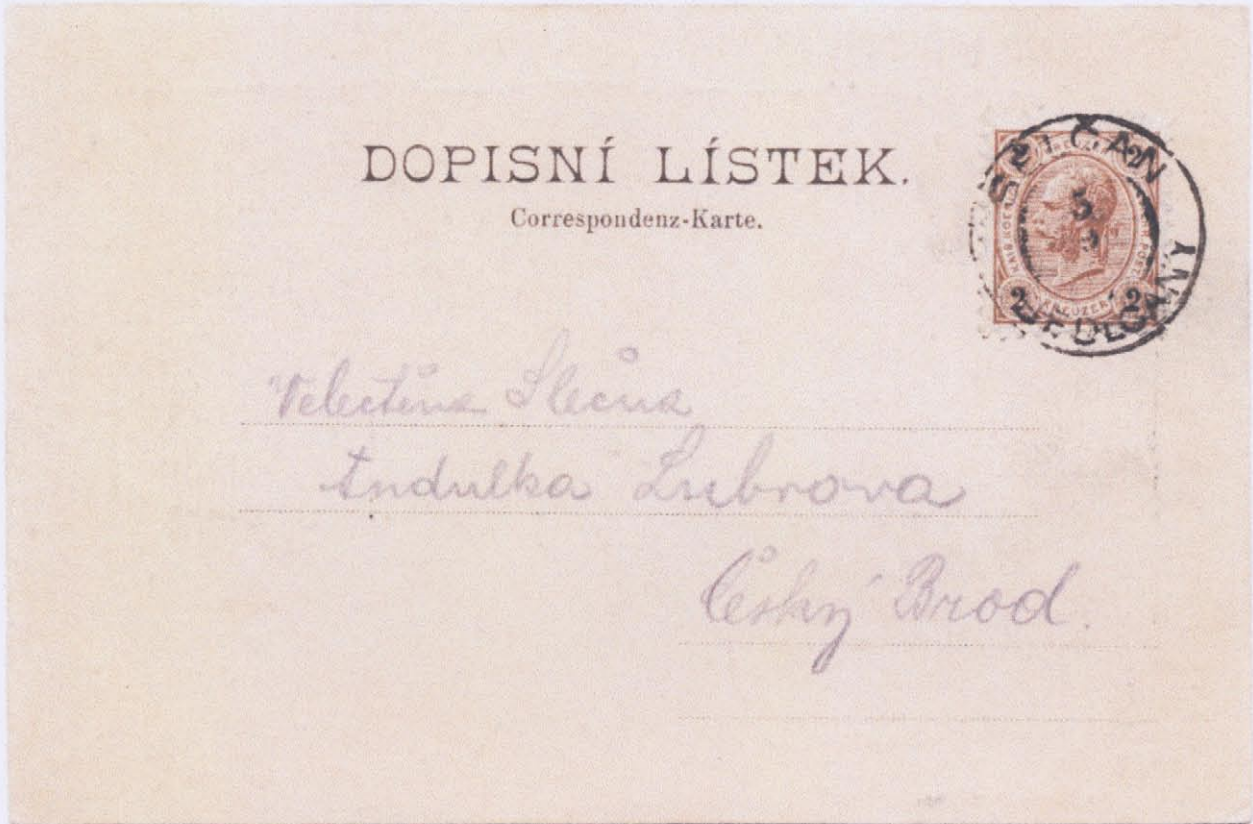 DOPISNÍ LÍSTEK.
Correspondenz-Karte.
SELČAN
5
SEDLČANY
2 KREUZER 2
Velectěná Slečna
Andulka Lubrova
Český Brod.